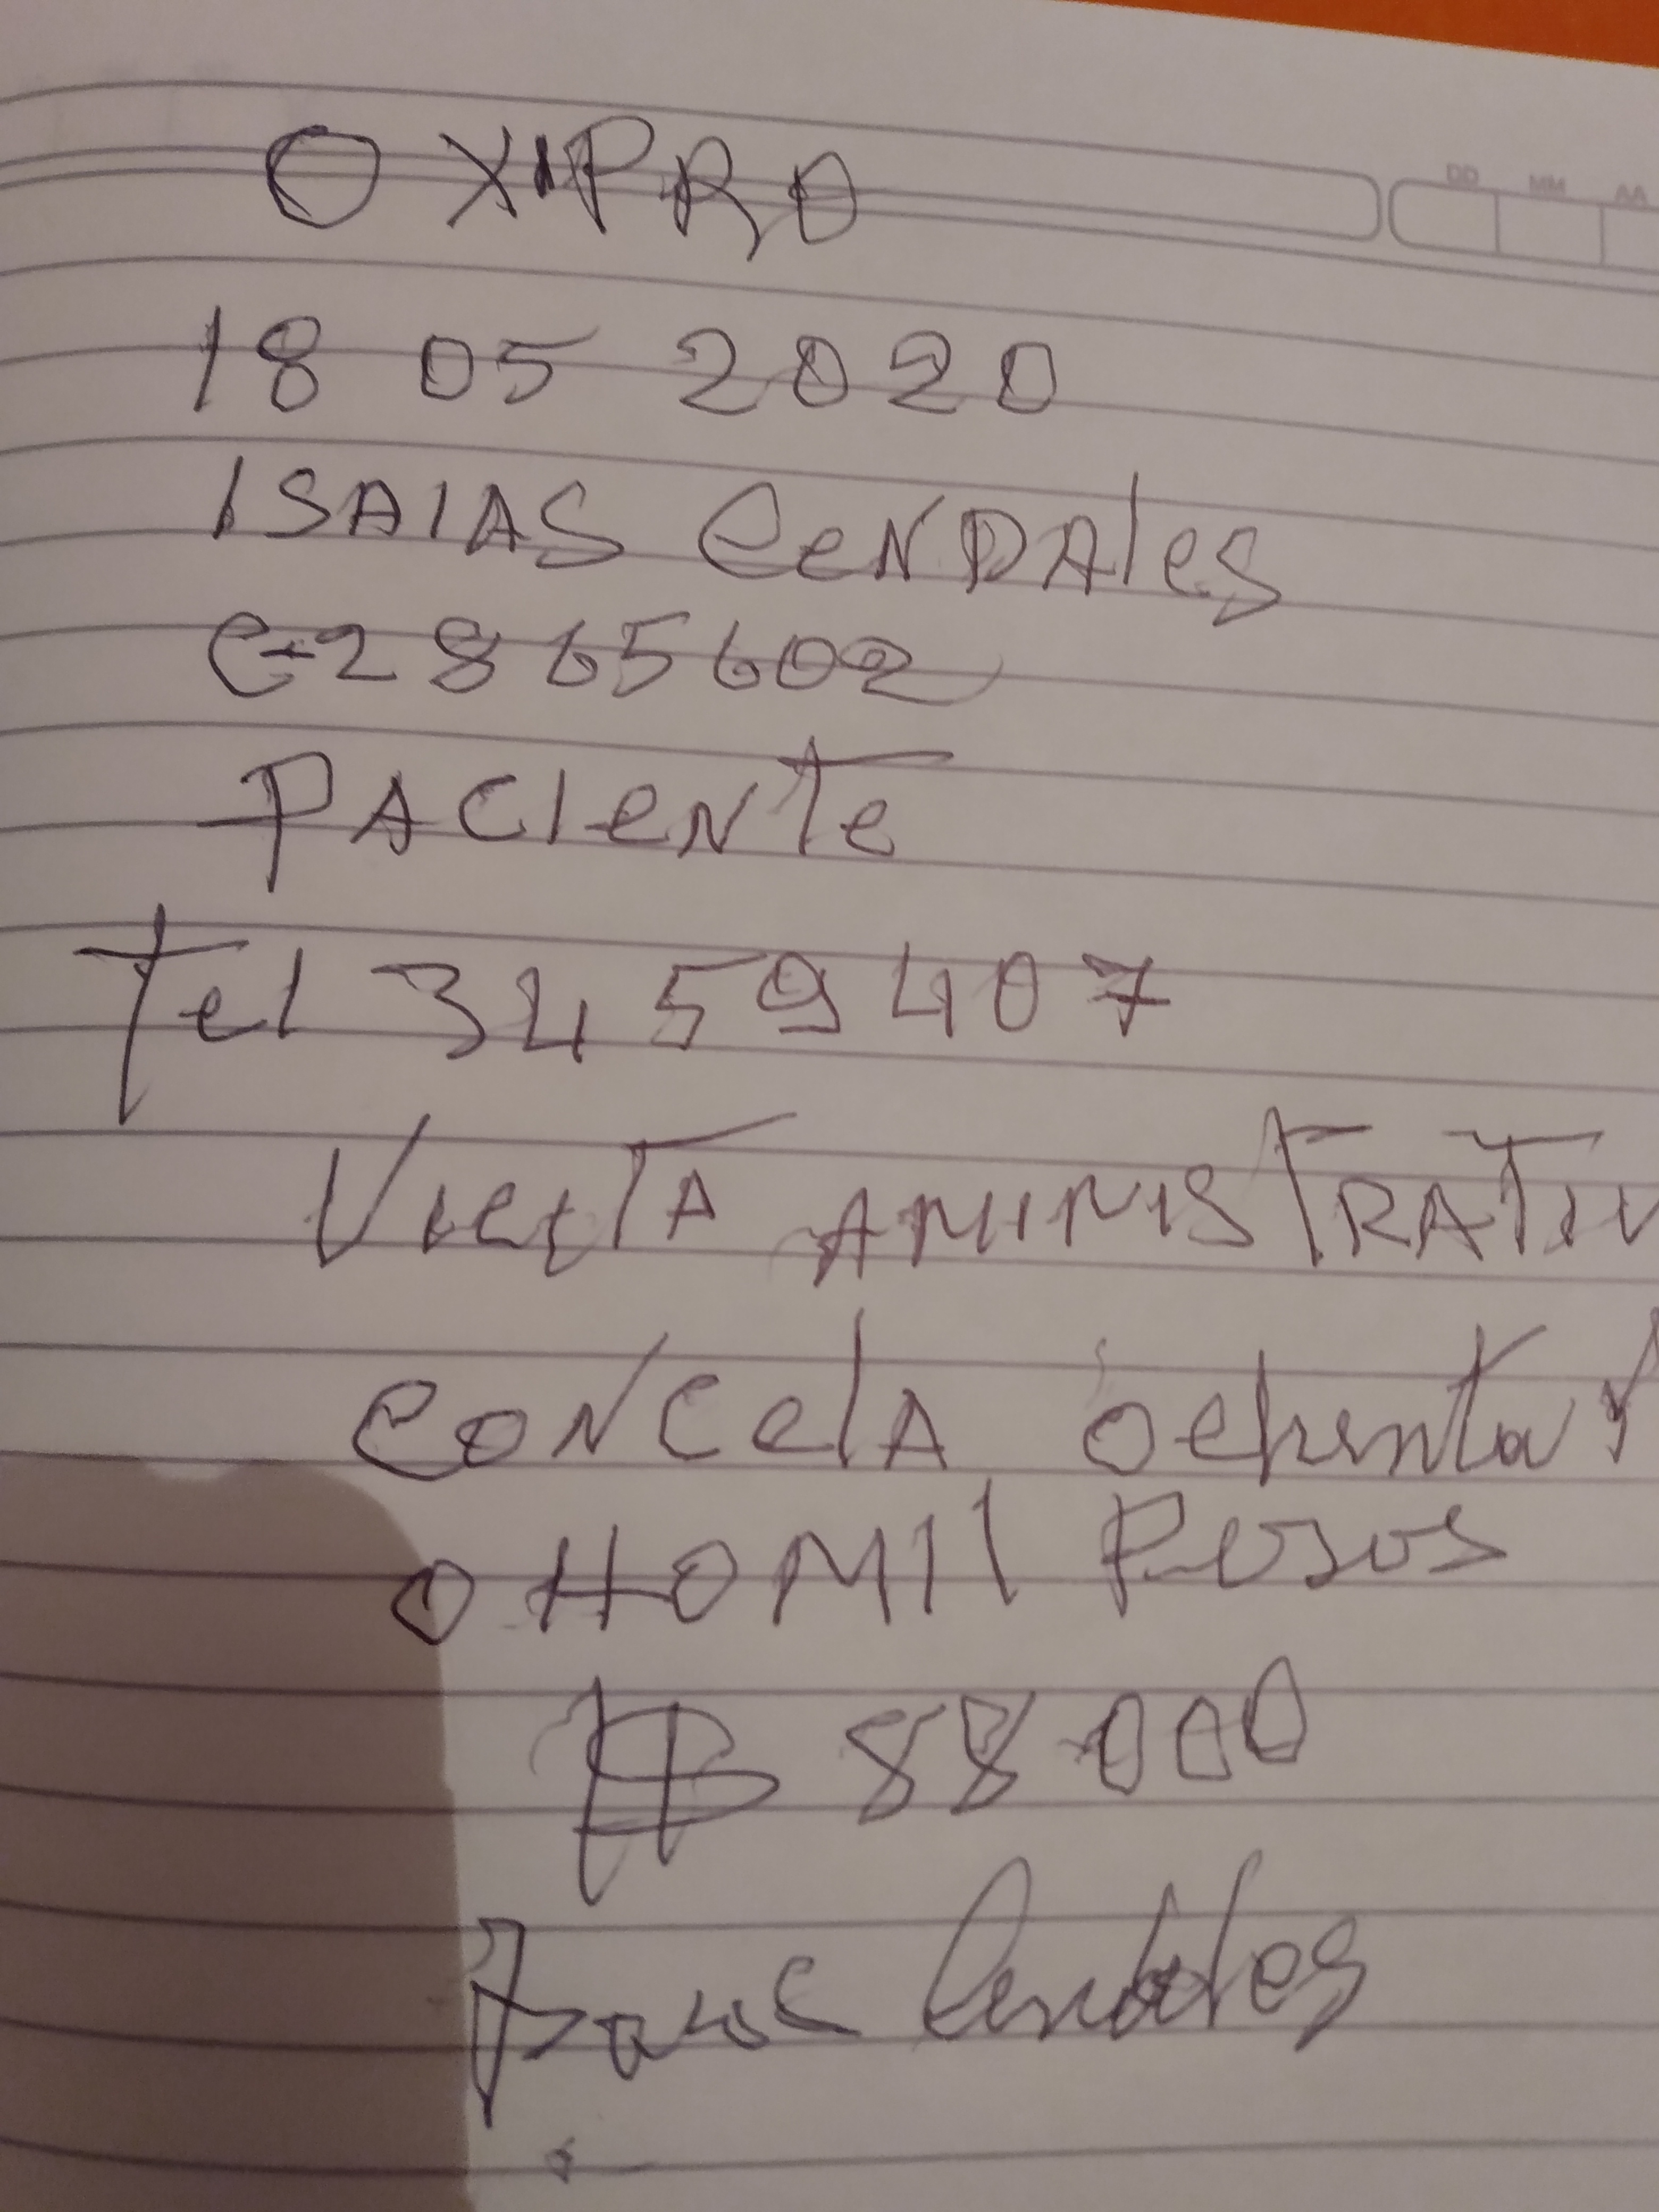 OXIPRO
DD MM AA
18 05 2020
ISAIAS CeNDAles
C-2865602
PACIeNte
Tel 3459407
VuelTA AMINISTRATIV
CONCelA ochenta y
OHOMIl Pesos
$ 88.000
Isaias Cendales